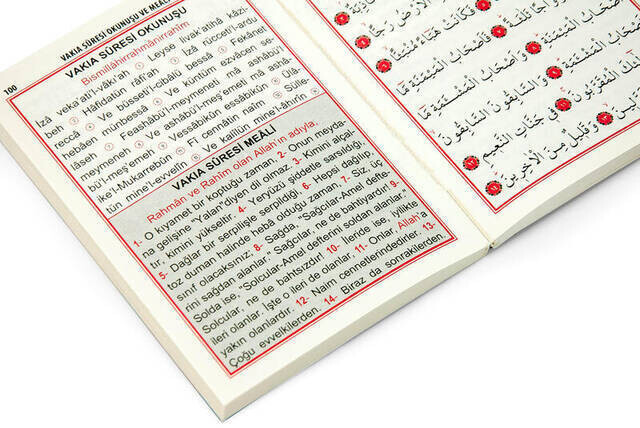 100
VAKIA SÛRESİ OKUNUŞU VE MEALİ
VAKIA SÛRESİ OKUNUŞU
Bismillâhirrahmânirrahîm
İzâ veka'ati'l-vâkı'ah Leyse livak'atihâ kâzi-
beh Hâfidatün râfi'ah İzâ rucceti'l-ardu
reccâ Ve büsseti'l-cibâlü bessâ Fekânet
hebâen münbessâ Ve küntüm ezvâcen se-
lâseh Feashâbü'l-meymeneti mâ ashâbü'l
meymeneh Ve ashâbü'l-meş'emeti mâ ashâ-
bü'l-meş'emeh Vessâbikûn essâbikûn Ülâ-
ike'l-Mukarrebûn Fî cennâtin naîm Sülle-
tün mine'l-evvelîn Ve kalîlün mine'l-âhirîn
VAKIA SÛRESİ MEALİ
Rahmân ve Rahîm olan Allah'ın adıyla.
1- O kıyamet bir koptuğu zaman, 2- Onun meyda-
na gelişine "Yalan"diyen dil olmaz. 3- Kimini alçal-
tır, kimini yükseltir. 4- Yeryüzü şiddetle sarsıldığı,
5- Dağlar bir serpilişle serpildiği, 6- Hepsi dağılıp,
toz duman halinde hebâ olduğu zaman. 7- Siz, üç
sınıf olacaksınız; 8- Sağda, "Sağcılar-Amel defte-
rini sağdan alanlar." Sağcılar, ne de bahtiyardır! 9-
Solda ise, "Solcular-Amel defterini soldan alanlar."
Solcular, ne de bahtsızdır! 10- İleride ise, iyilikte
ileri olanlar. İşte o ileri de olanlar. 11- Onlar, Allah'a
yakın olanlardır. 12- Naim cennetlerindedirler. 13-
Çoğu evvelkilerden. 14- Biraz da sonrakilerden.
الْأَرْضُ رَجًّا
فَكَانَتْ هَبَاءً مُنْبَثًّا
فَأَصْحَابُ الْمَيْمَنَةِ مَا
وَأَصْحَابُ الْمَشْئَمَةِ مَا
وَالسَّابِقُونَ السَّابِقُونَ
الْمُقَرَّبُونَ فِي جَنَّاتِ النَّعِيمِ
وَقَلِيلٌ مِنَ الْآخِرِينَ